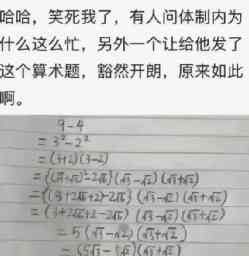 哈哈，笑死我了，有人问体制内为
什么这么忙，另外一个让给他发了
这个算术题，豁然开朗，原来如此
啊。
9-4
=3²-2²
=(3+2)(3-2)
={(√3+√2)²-2√6}(√3-√2)(√3+√2)
={(3+2√6+2)-2√6}(√3-√2)(√3+√2)
=(3+2√6+2-2√6)(√3-√2)(√3+√2)
=5(√3-√2)(√3+√2)
=(5√3-5√2)(√3+√2)